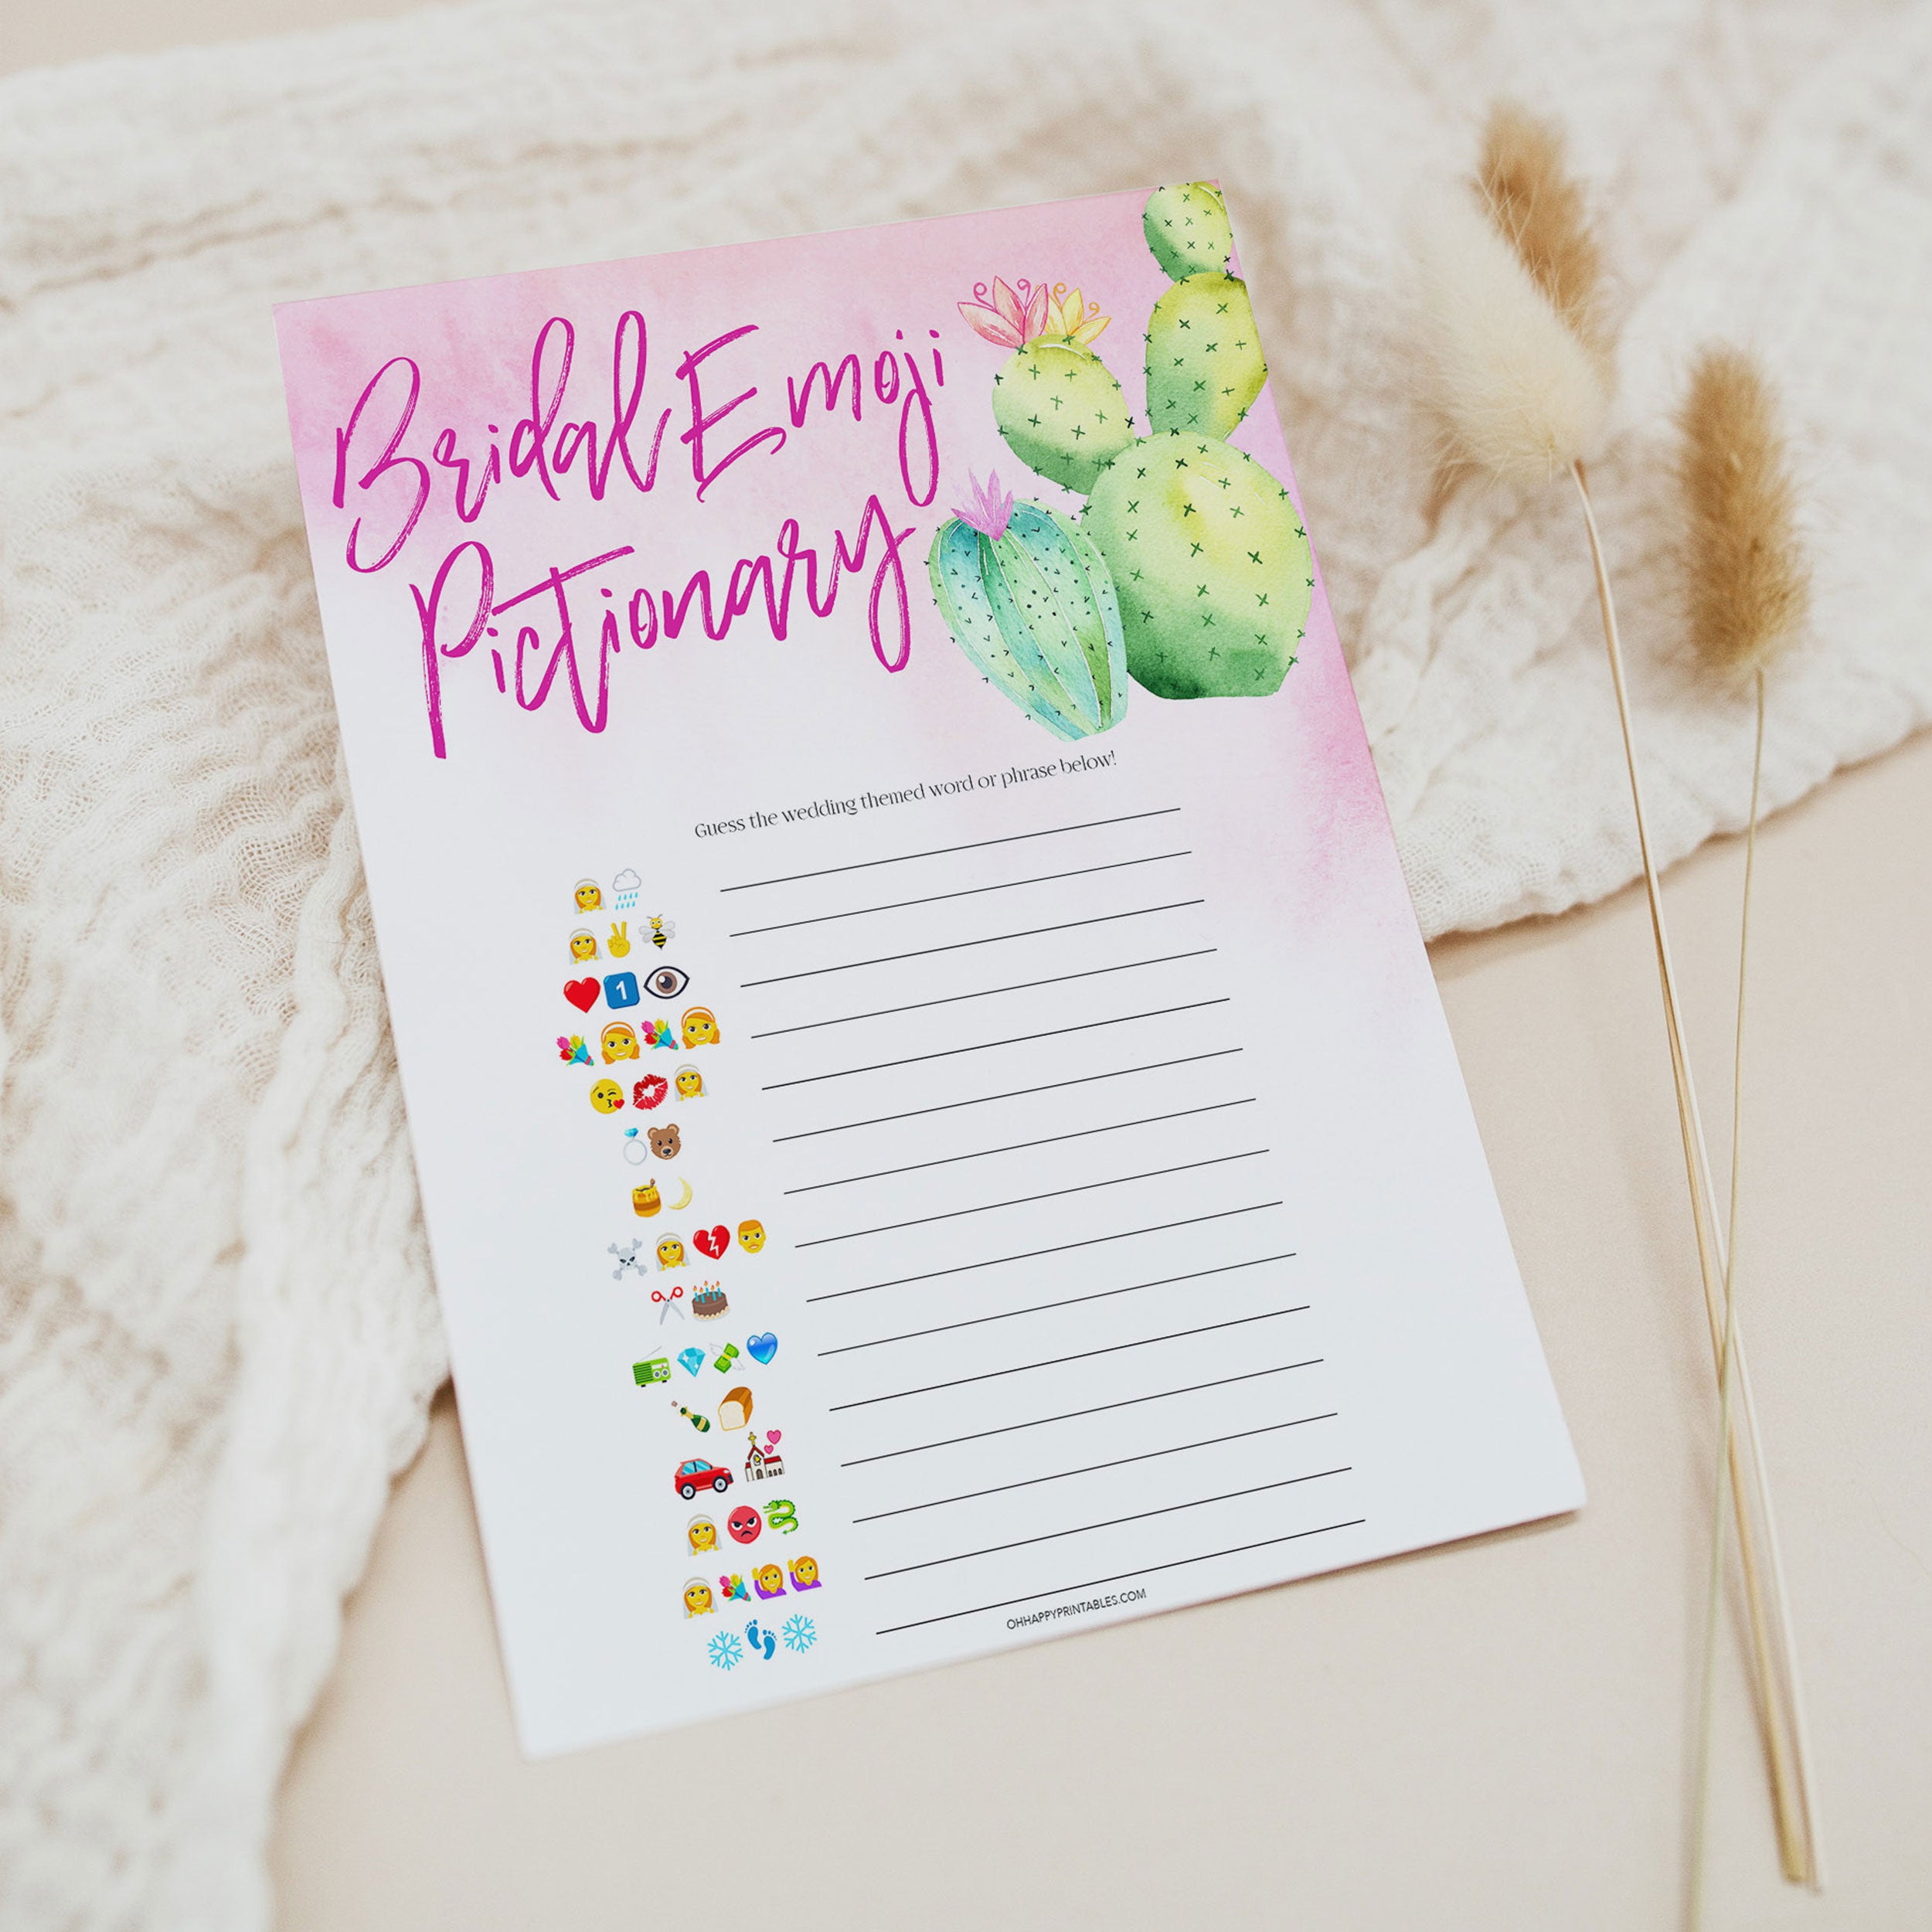 Bridal Emoji
Pictionary
Guess the wedding themed word or phrase below!
1
OHHAPPYPRINTABLES.COM